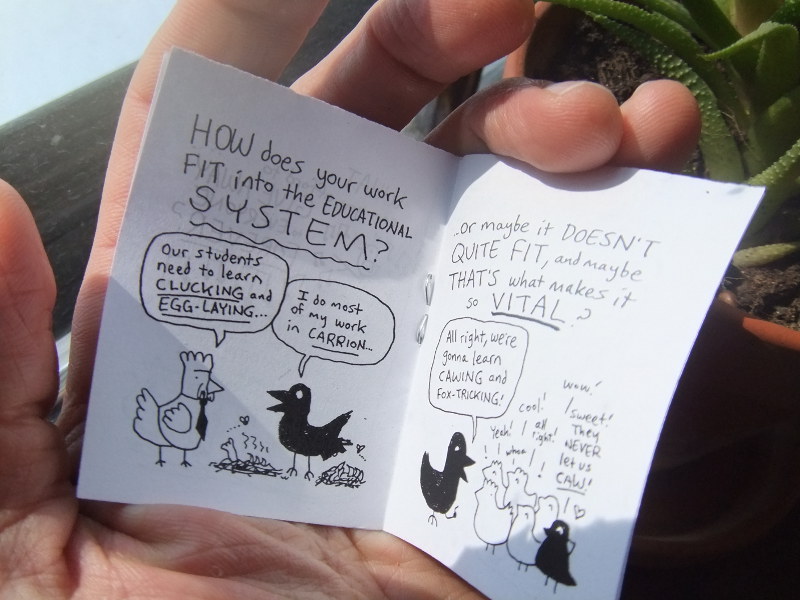 HOW does your work
FIT into the EDUCATIONAL
SYSTEM?
Our students
need to learn
CLUCKING and
EGG-LAYING...
I do most
of my work
in CARRION...
..or maybe it DOESN'T
QUITE FIT, and maybe
THAT'S what makes it
so VITAL..?
All right, we're
gonna learn
CAWING and
FOX-TRICKING!
cool!
Yeah!
all
right!
! whoa! !
wow!
sweet!
They
NEVER
let us
CAW!